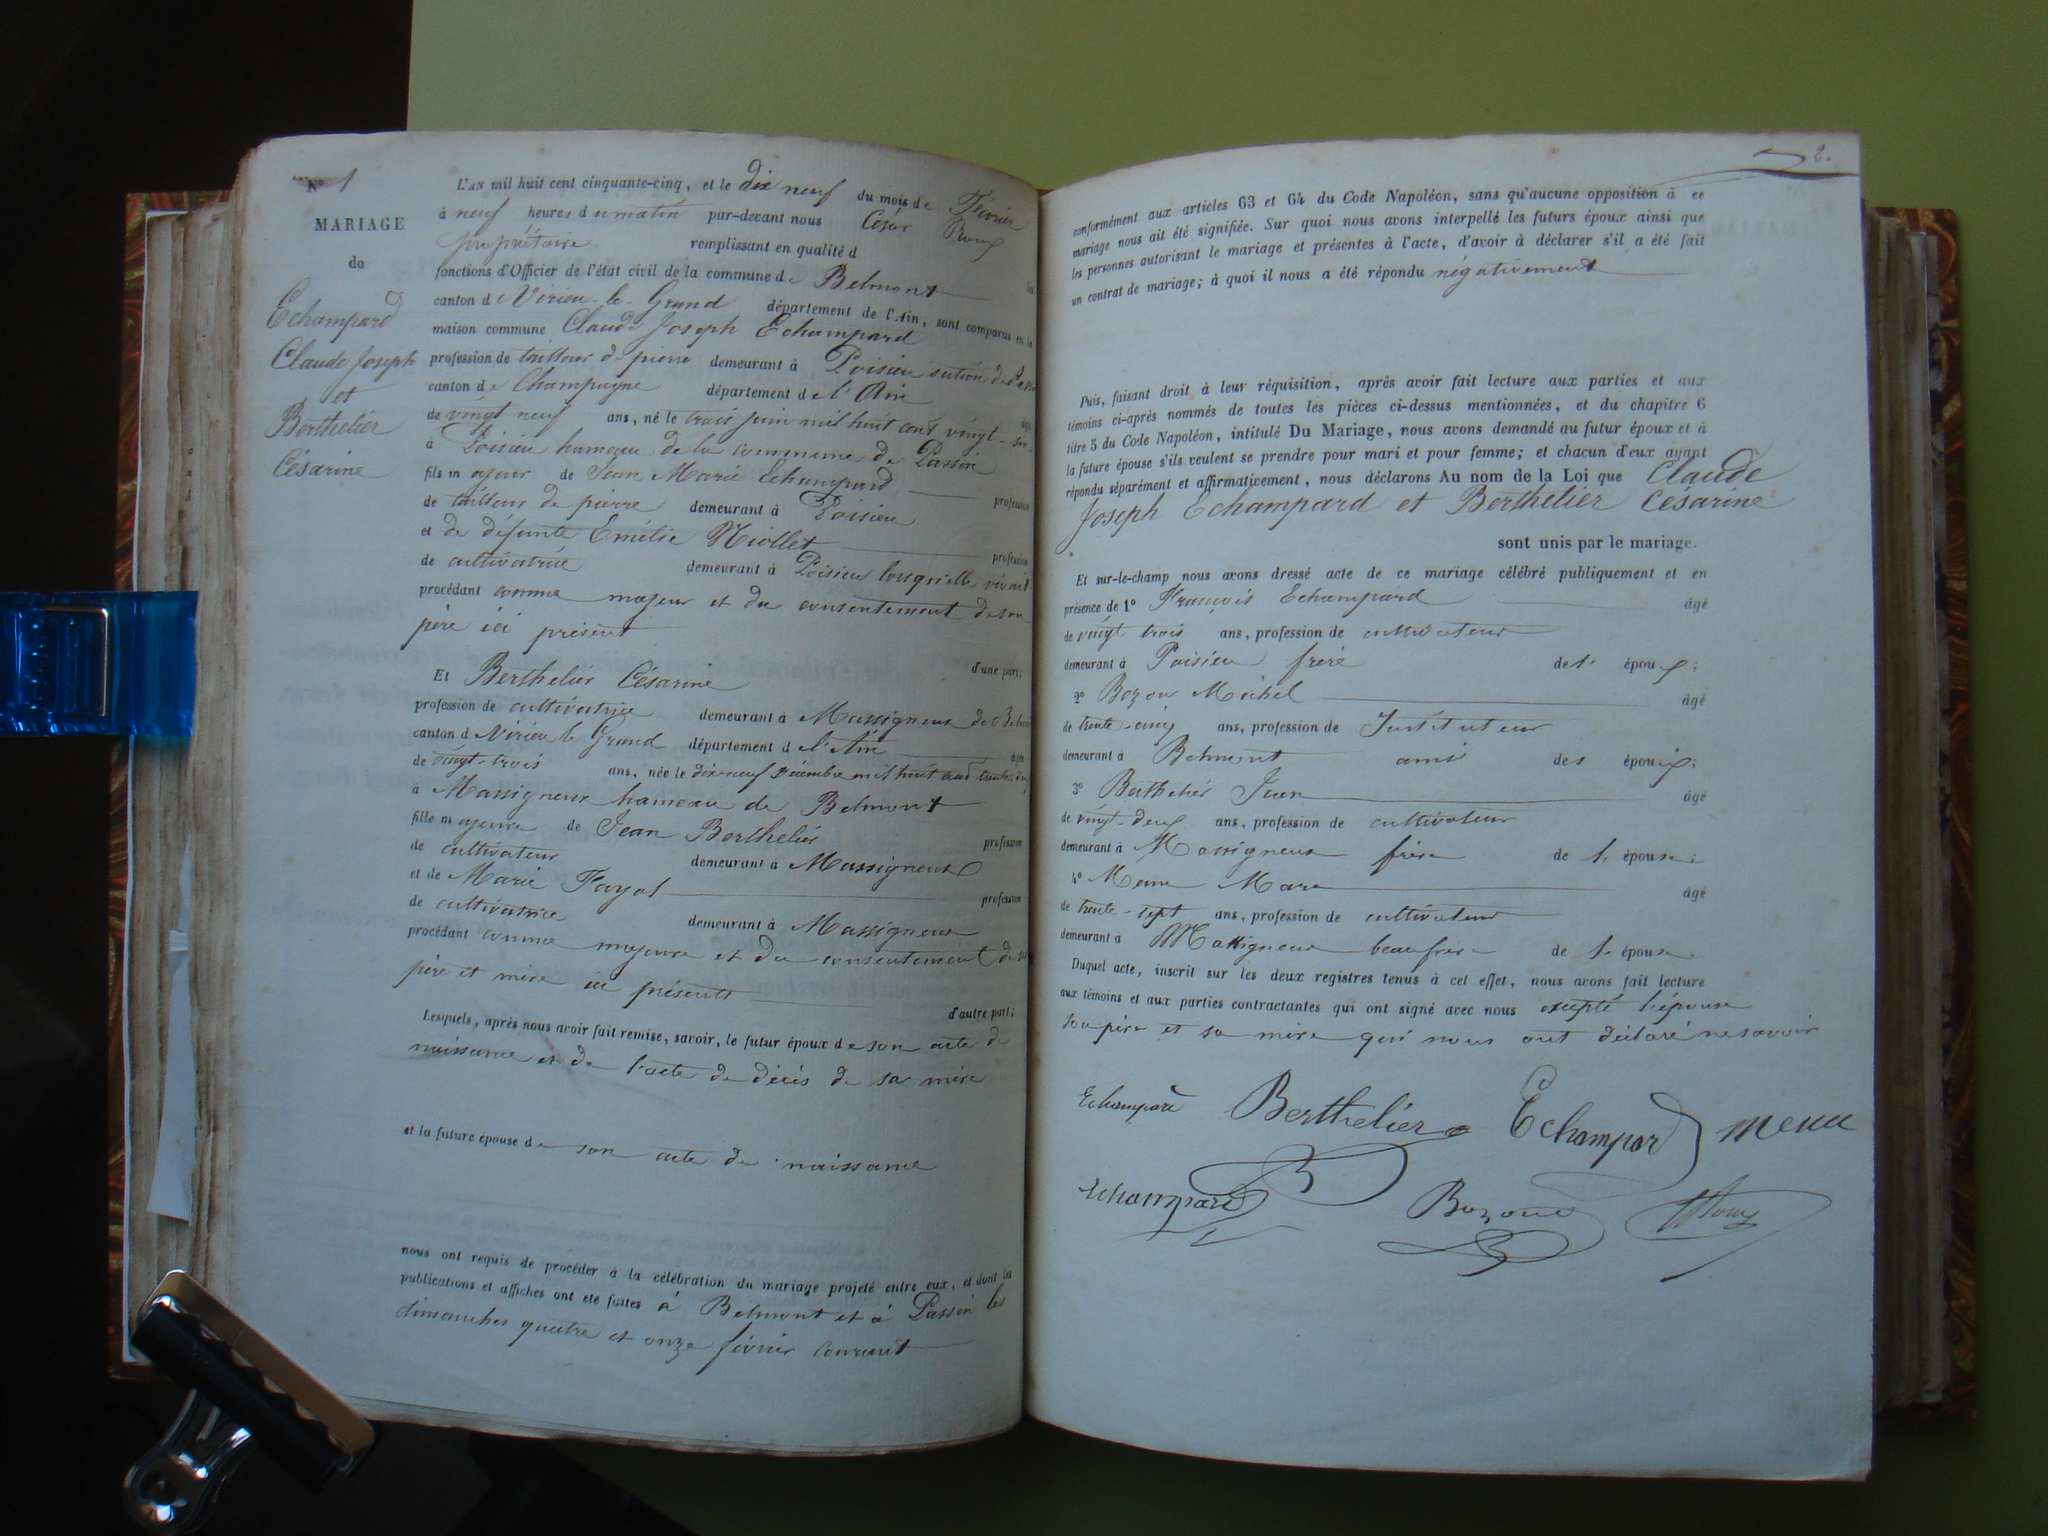 N° 1
MARIAGE
de
Echampard
Claude Joseph
et
Berthelier
Césarine
L'AN mil huit cent cinquante-cinq, et le dix neuf du mois de Février
à neuf heures du matin par-devant nous César Roux
propriétaire remplissant en qualité d
fonctions d'Officier de l'état civil de la commune de Belmont les
canton de Virieu-le-Grand département de l'Ain, sont comparus en la
maison commune Claude Joseph Echampard
profession de tailleur de pierre demeurant à Poisieu
canton de Champagne département de l'Ain âgé
de vingt neuf ans, né le trois juin mil huit cent vingt-
à Poisieu hameau de la commune de Passin
fils majeur de Jean Marie Echampard profession
de tailleur de pierre demeurant à Poisieu
et de défunte Emélie Miollet profession
de cultivatrice demeurant à Poisieu lorsqu'elle vivait
procédant comme majeur et du consentement de son
père ici présent
d'une part;
Et Berthelier Césarine
profession de cultivatrice demeurant à Massigneux de Belmont
canton de Virieu le Grand département de l'Ain âgée
de vingt-trois ans, née le dix-neuf Décembre mil huit cent trente
à Massigneux hameau de Belmont
fille majeure de Jean Berthelier profession
de cultivateur demeurant à Massigneux
et de Marie Fayol profession
de cultivatrice demeurant à Massigneux
procédant comme majeure et du consentement de ses
père et mère ici présents
d'autre part;
Lesquels, après nous avoir fait remise, savoir, le futur époux de son acte de
naissance et de l'acte de décès de sa mère
et la future épouse de son acte de naissance
nous ont requis de procéder à la célébration du mariage projeté entre eux, et dont les
publications et affiches ont été faites à Belmont et à Passin les
dimanches quatre et onze février courant
2.
conformément aux articles 63 et 64 du Code Napoléon, sans qu'aucune opposition à ce
mariage nous ait été signifiée. Sur quoi nous avons interpellé les futurs époux ainsi que
les personnes autorisant le mariage et présentes à l'acte, d'avoir à déclarer s'il a été fait
un contrat de mariage; à quoi il nous a été répondu négativement
Puis, faisant droit à leur réquisition, après avoir fait lecture aux parties et aux
témoins ci-après nommés de toutes les pièces ci-dessus mentionnées, et du chapitre 6
titre 5 du Code Napoléon, intitulé Du Mariage, nous avons demandé au futur époux et à
la future épouse s'ils veulent se prendre pour mari et pour femme; et chacun d'eux ayant
répondu séparément et affirmativement, nous déclarons Au nom de la Loi que Claude
Joseph Echampard et Berthelier Césarine
sont unis par le mariage.
Et sur-le-champ nous avons dressé acte de ce mariage célébré publiquement et en
présence de 1° François Echampard âgé
de vingt trois ans, profession de cultivateur
demeurant à Poisieu frère de l' époux;
2° Bozon Michel âgé
de trente-cinq ans, profession de Instituteur
demeurant à Belmont ami des époux;
3° Berthelier Jean âgé
de vingt-deux ans, profession de cultivateur
demeurant à Massigneux frère de l' épouse;
4° Menu Marc âgé
de trente-sept ans, profession de cultivateur
demeurant à Massigneux beau frère de l' épouse
Duquel acte, inscrit sur les deux registres tenus à cet effet, nous avons fait lecture
aux témoins et aux parties contractantes qui ont signé avec nous excepté l'épouse
son père et sa mère qui nous ont déclaré ne savoir
Echampard Berthelier Echampard menu
Echampard Bozon Roux